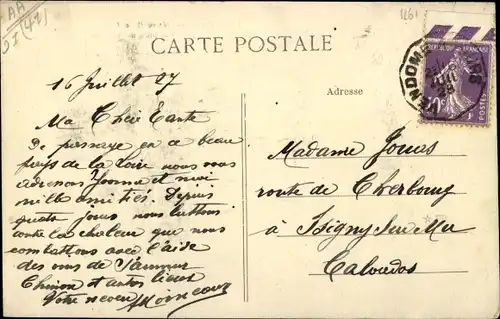 AA
CARTE POSTALE
Adresse
16 Juillet 27
Ma Chère Tante
De passage en ce beau
pays de la Loire nous vous
adressons Yvonne et moi
mille amitiés. Depuis
quatre jours nous luttons
contre la chaleur que nous
combattons avec l'aide
des vins de Saumur
Chinon et autres lieux
Votre neveu
VENDOME
REPUBLIQUE FRANÇAISE
Madame Jouas
route de Cherbourg
à Isigny sur Mer
Calvados